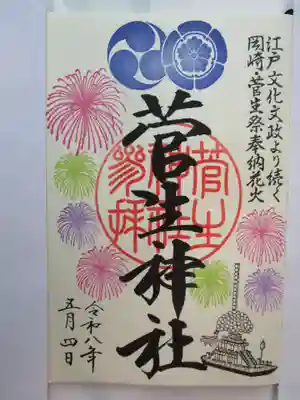 江戸文化文政より続く
岡崎・菅生祭奉納花火
菅生神社
令和八年
五月四日